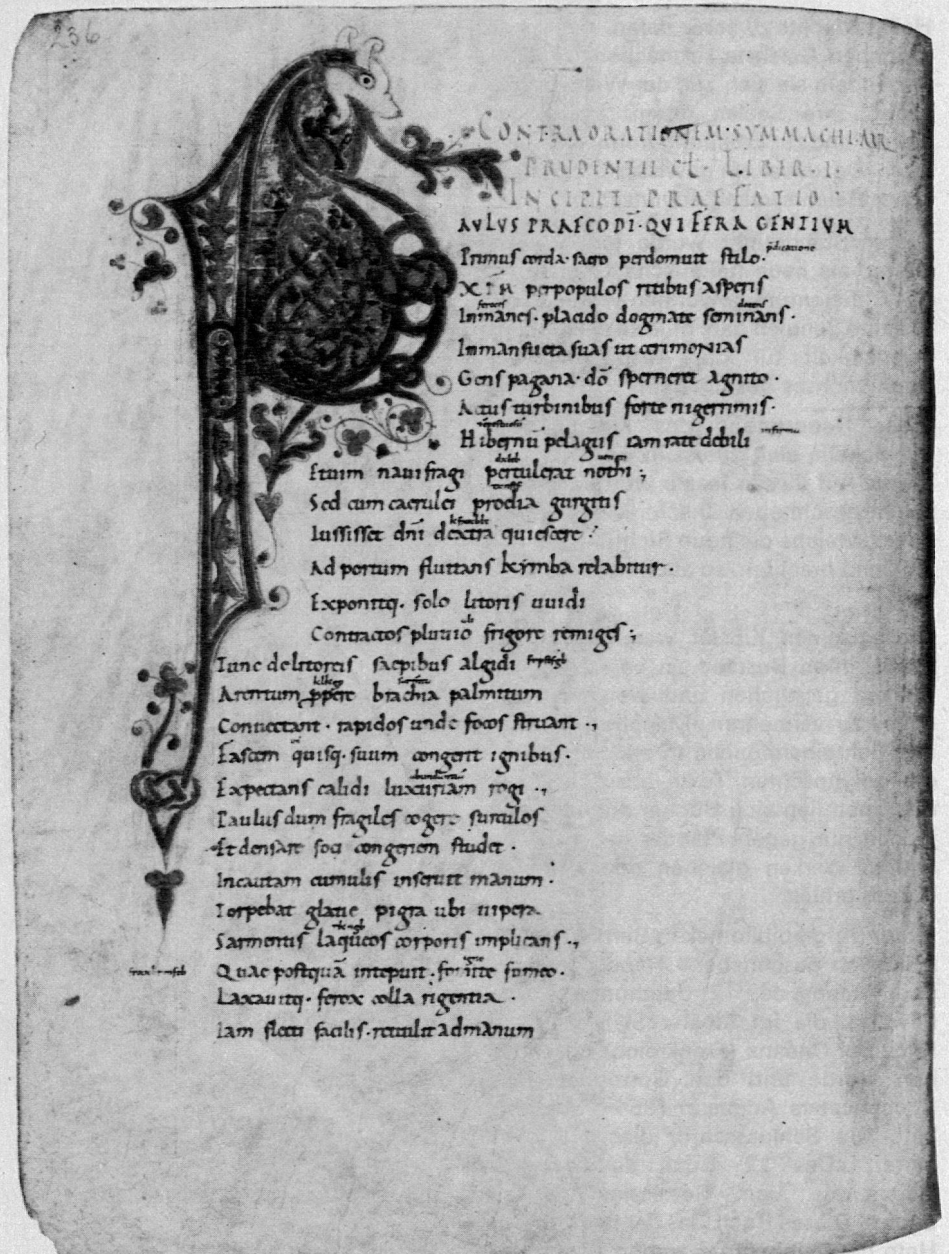 236
CONTRA ORATIONEM·SYMMACHI·AUR
PRUDENTII CL·LIBER·I·
INCIPIT PRAEFATIO
PAULUS PRAECO DĪ·QUI FERA GENTIUM
Primus corda·sacro perdomuit stilo· p̄dicatione
XPM per populos ritibus asperis
Inmanes·placido dogmate seminans·
Inmansueta suas ut cerimonias
Gens pagana·dō sperneret agnito·
Actus turbinibus forte nigerrimis·
Hibernū pelagus iam rate debili
Et uim nauifragi pertulerat nothi;
Sed cum caerulei proelia gurgitis
Iussisset dn̄i dextra quiescere·
Ad portum fluitans kymba relabitur·
Exponitq· solo litoris uuidi
Contractos pluuio frigore remiges;
Tunc de litoreis saepibus algidi
Arentum p̄pere brachia palmitum
Conuectant·rapidos unde focos struant·,
Fascem quisq·suum congerit ignibus·
Expectans calidi luxuriam rogi·,
Paulus dum fragiles cogere surculos
Et densare foci congeriem studet·
Incautam cumulis inseruit manum·
Torpebat glacie pigra ubi uipera
Sarmentis laqueos corporis implicans·,
Quae postquā intepuit·fomite fumeo·
Laxauitq·ferox colla rigentia·
Iam flecti facilis·retulit ad manum